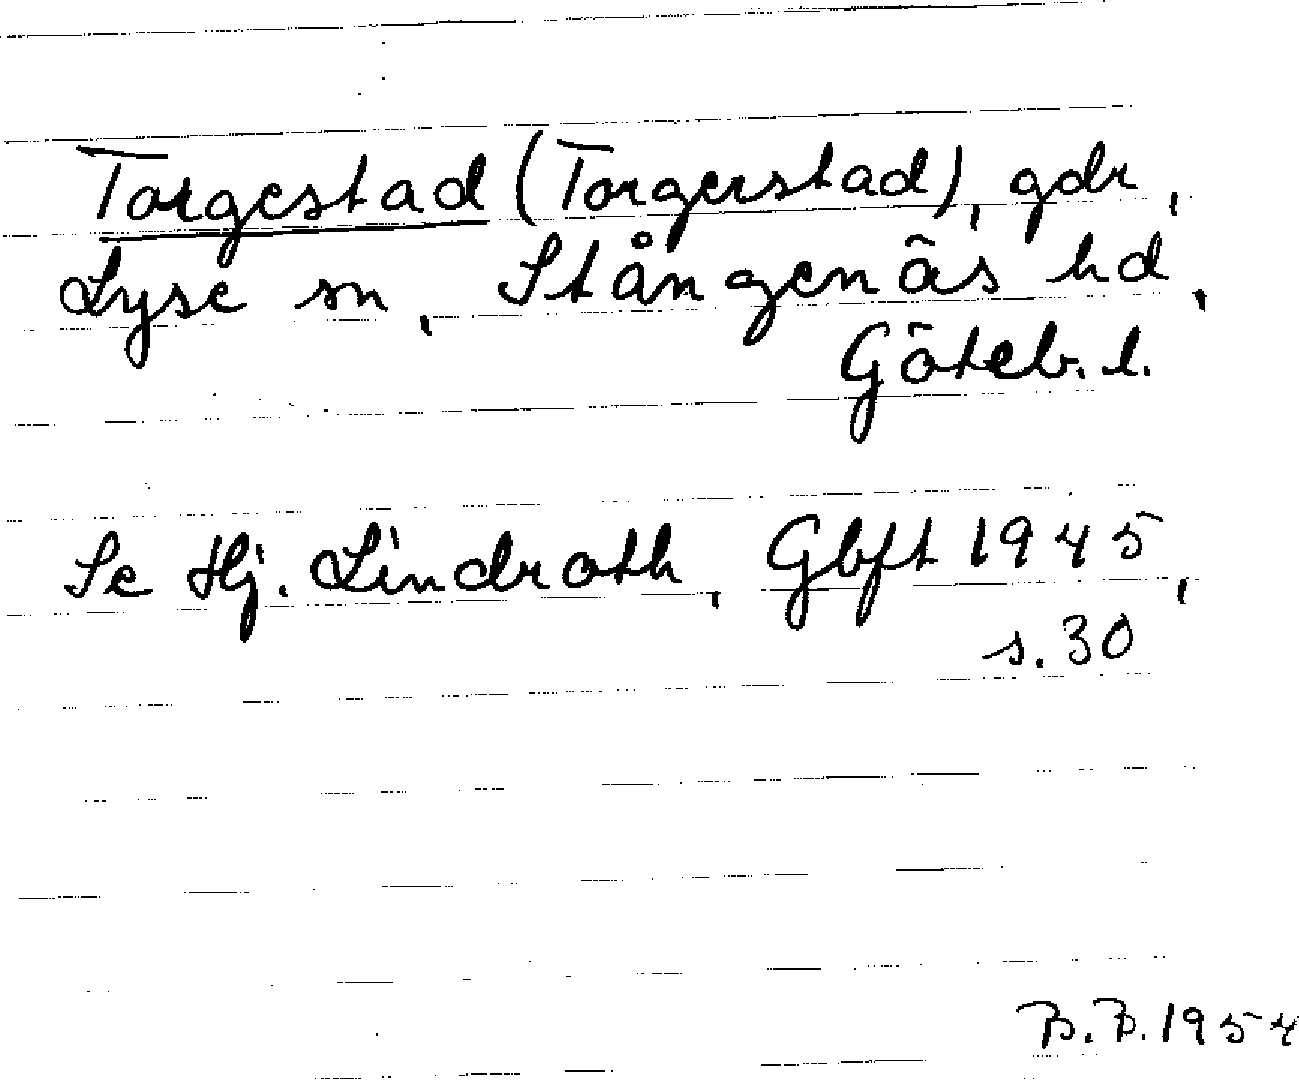 Torgestad (Torgerstad), gdr,
Lyse sn, Stångenäs hd,
Göteb. l.
Se Hj. Lindroth, Gbft 1945,
s. 30
B.B. 1954